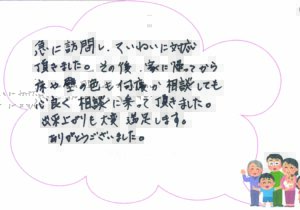 急に訪問し、ていねいに対応
頂きました。その後、家に帰ってから
床や壁の色も何度か相談しても
心良く相談に乗って頂きました。
出来上がりも大変満足します。
ありがとうございました。